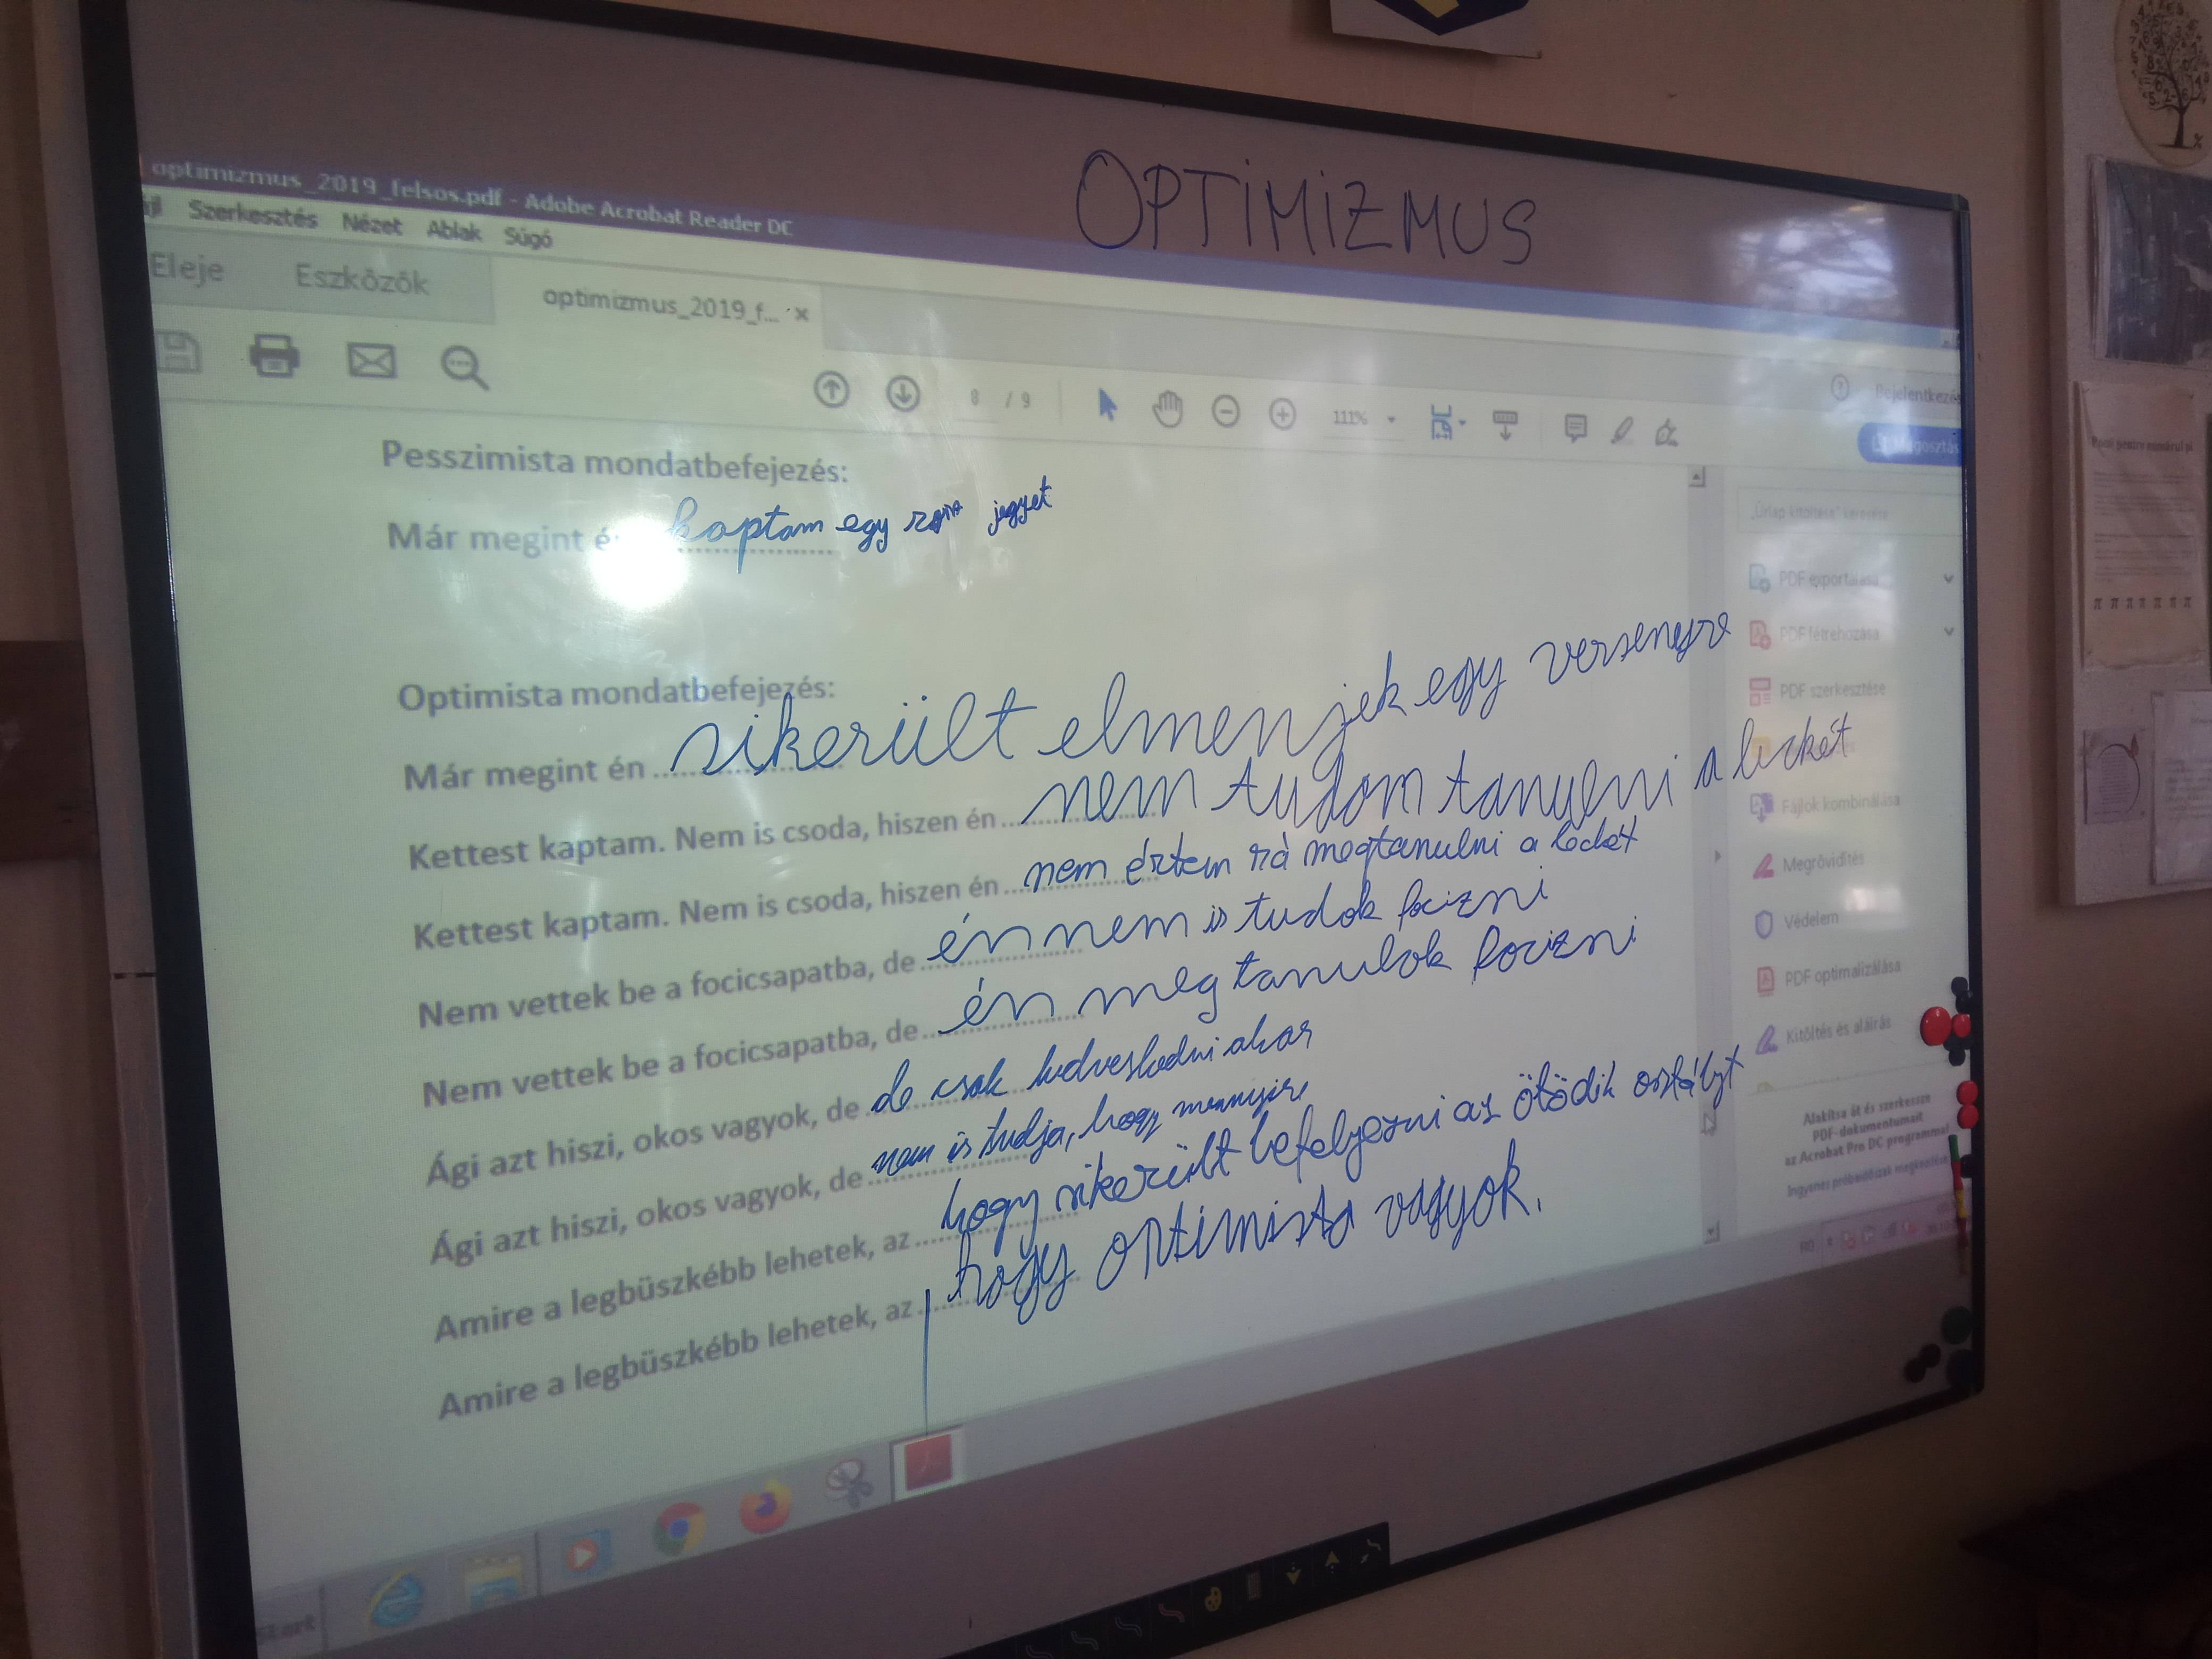 OPTIMIZMUS
optimizmus_2019_felsos.pdf - Adobe Acrobat Reader DC
Szerkesztés Nézet Ablak Súgó
Eleje Eszközök optimizmus_2019_f... ×
8 / 9 111%
Pesszimista mondatbefejezés:
Már megint é kaptam egy jegyet
Optimista mondatbefejezés:
Már megint én ........ sikerült elmenjek egy versenyre
Kettest kaptam. Nem is csoda, hiszen én ........ nem tudom tanulni a leckét
Kettest kaptam. Nem is csoda, hiszen én ........ nem értem rá megtanulni a leckét
Nem vettek be a focicsapatba, de ........ én nem is tudok focizni
Nem vettek be a focicsapatba, de ........ én megtanulok focizni
Ági azt hiszi, okos vagyok, de ........ de csak kedveskedni akar
Ági azt hiszi, okos vagyok, de ........ nem is tudja, hogy mennyire
Amire a legbüszkébb lehetek, az ........ hogy sikerült befelyezni az ötödik osztályt
Amire a legbüszkébb lehetek, az ........ hogy optimista vagyok.
Megosztás
PDF exportálása
PDF létrehozása
PDF szerkesztése
Fájlok kombinálása
Megrövidítés
Védelem
PDF optimalizálása
Kitöltés és aláírás
Alakítsa át és szerkessze
PDF-dokumentumait
az Acrobat Pro DC programmal
Start